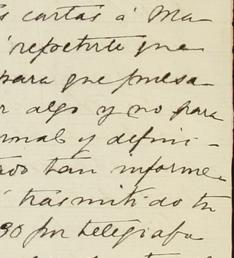 s cartas á Ma
repetirte que
para que puesa
r algo y no para
rmal y defini-
ado tan informe
trasmitido tu
30 por telegrafo